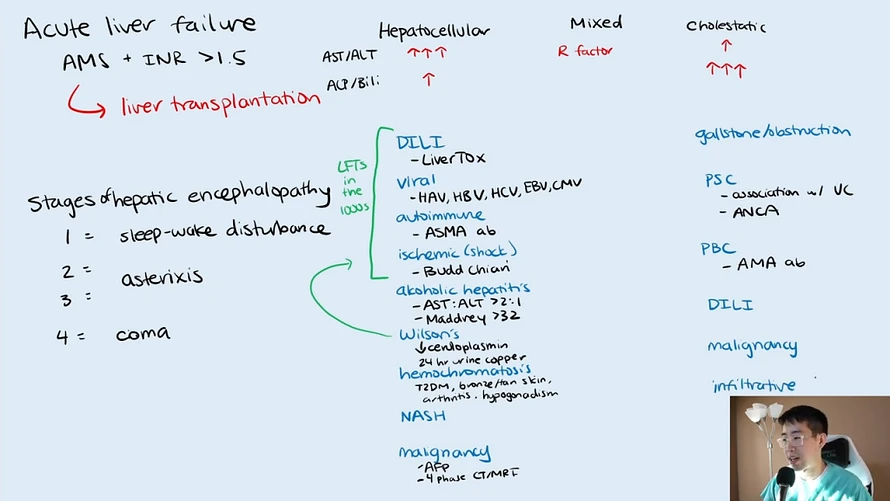 Acute liver failure
AMS + INR >1.5
liver transplantation
Stages of hepatic encephalopathy
1 = sleep-wake disturbance
2 = asterixis
3 =
4 = coma
Hepatocellular
Mixed
Cholestatic
AST/ALT ↑↑↑
R factor
↑
ALP/Bili ↑
↑↑↑
LFTs
in
the
1000s
DILI
- LiverTox
viral
- HAV, HBV, HCV, EBV, CMV
autoimmune
- ASMA ab
ischemic (shock)
- Budd Chiari
alcoholic hepatitis
- AST:ALT >2:1
- Maddrey >32
Wilson's
↓ceruloplasmin
24 hr urine copper
hemochromatosis
T2DM, bronze/tan skin,
arthritis, hypogonadism
NASH
malignancy
- AFP
- 4 phase CT/MRI
gallstone/obstruction
PSC
- association w/ UC
- ANCA
PBC
- AMA ab
DILI
malignancy
infiltrative